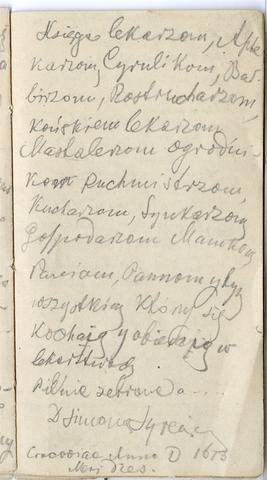 Księga lekarzom, Apte
karzom, Cyrulikom, Bal-
birzom, Rostrucharzom,
końskiem lekarzom
Mastalerzom ogrodni-
kom Kuchmistrzom,
Kucharzom, Synkarzom
Gospodarzom Mamkom
Paniom, Pannom y tym
wszystkim Który się
kochają y obierają w
lekarstwach
pilnie zebrane a ....
D Simona Syreniu
Cracoviae Anno D 1613